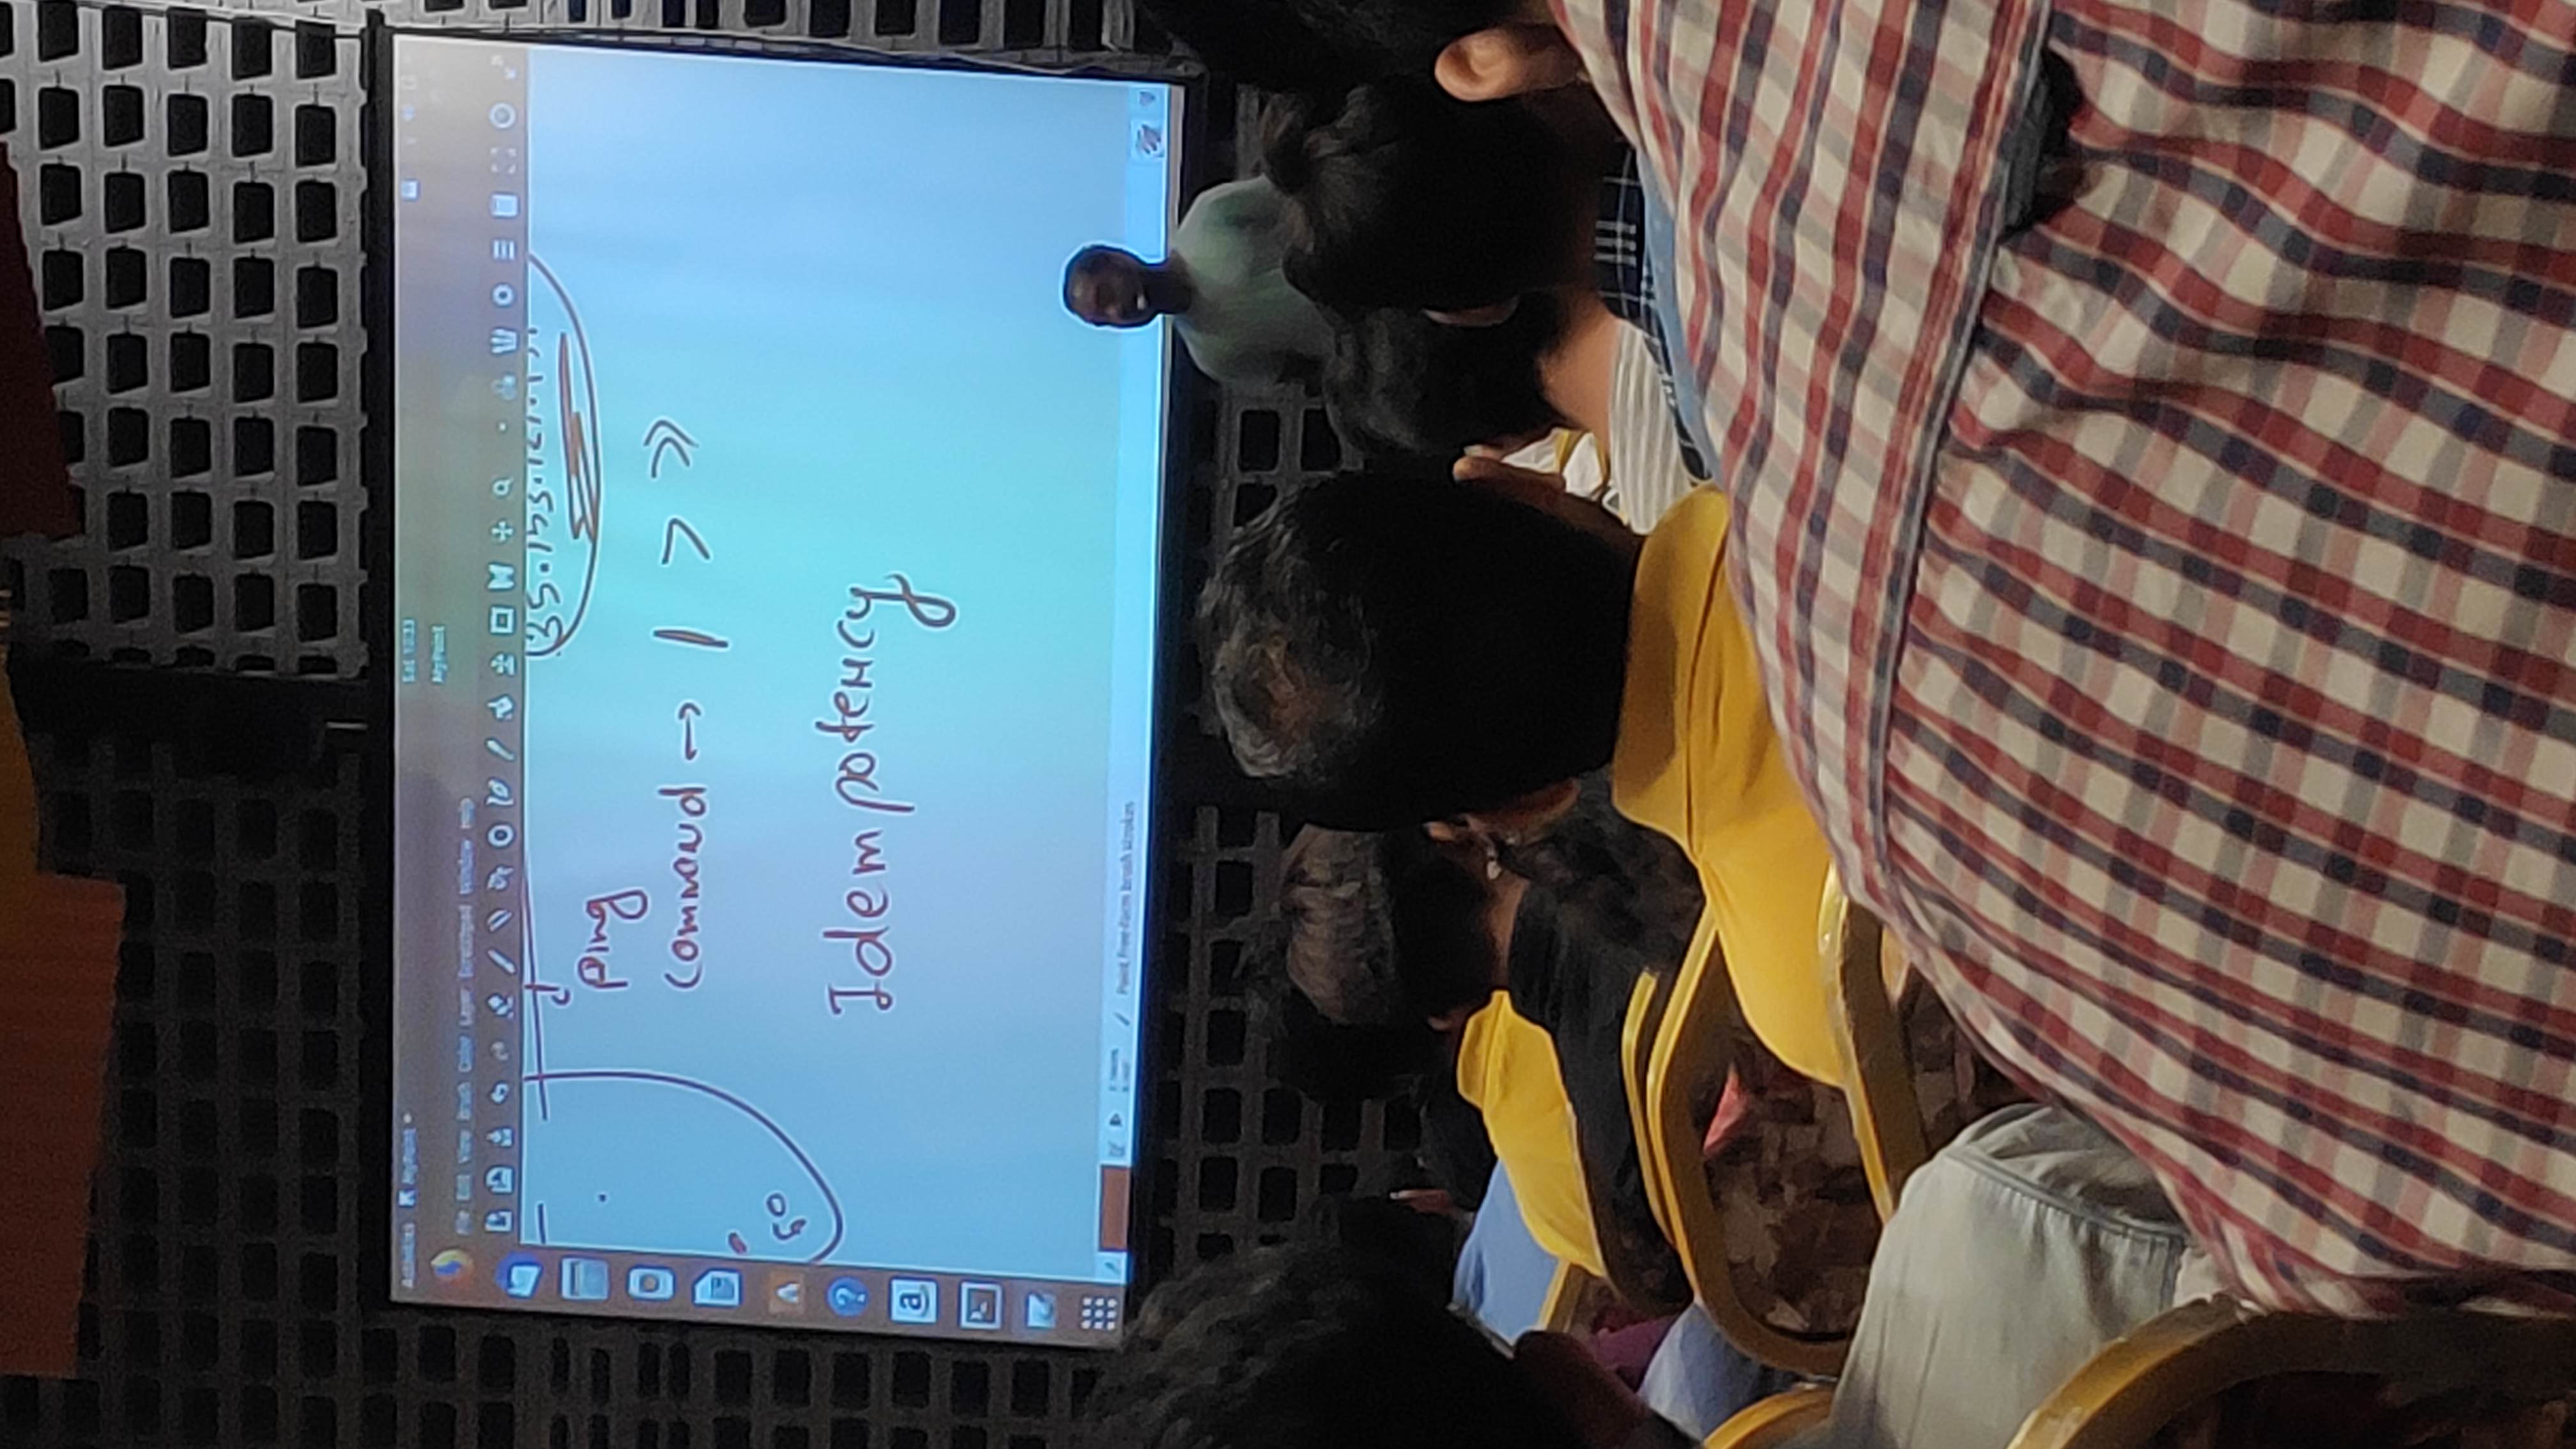 Activities MyPaint
Sat 10:33
MyPaint
File Edit View Brush Color Layer Scratchpad Window Help
Ping
Command → | > >>
50
Idempotency
?
a
Paint free-form brush strokes